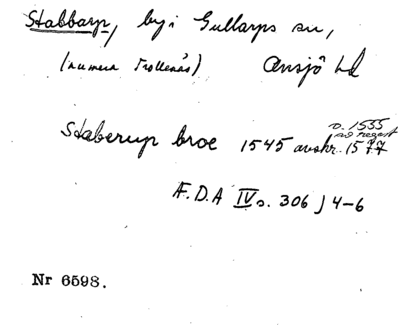 Stabbarp, by i Gullarps sn,
(numera Trollenäs) Onsjö hd
Staberup broe 1545 avskr. 1577
o. 1555
F.D.A IV s. 306 J 4-6
Nr 6598.